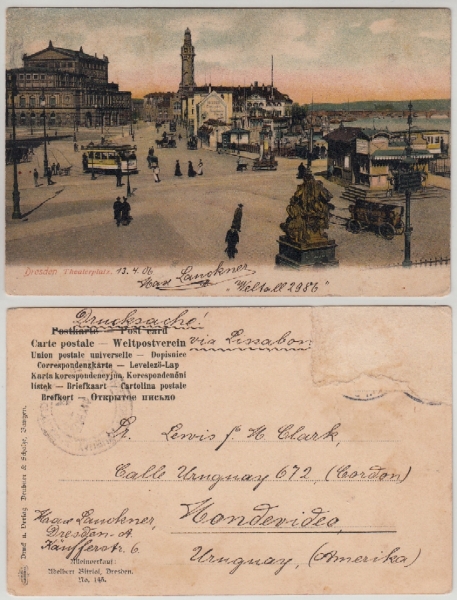 Dresden Theaterplatz. 13.4.06
Max Lanckner
"Weltall 2986"
Drucksache!
Postkarte — Post card
Carte postale — Weltpostverein
via Lissabon
Union postale universelle — Dopisnice
Correspondenzkarte — Levelező-Lap
Karta korespondencyjna, Korespondenčni
listek — Briefkaart — Cartolina postale
Brefkort — Открытое письмо
Sr. Lewis J. H. Clark,
Calle Uruguay 672, (Cordon)
Montevideo,
Uruguay, (Amerika)
Max Lanckner,
Dresden-A.
Käufferstr. 6
Alleinverkauf:
Adelbert Birtal, Dresden.
No. 148.
Druck u. Verlag